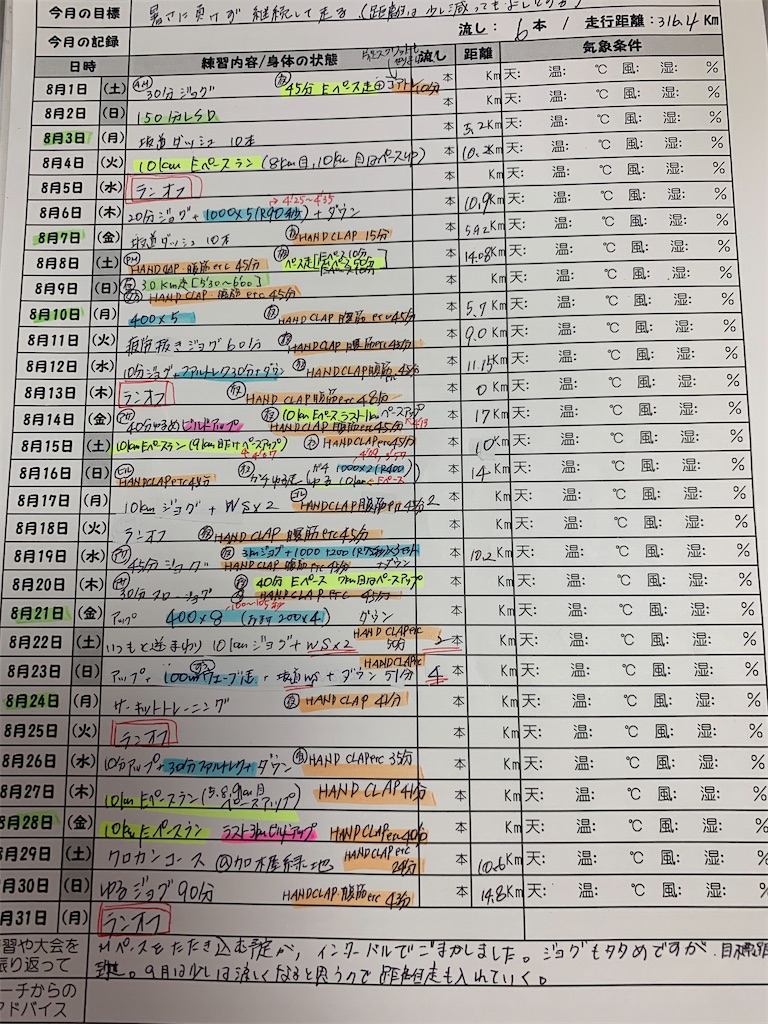 今月の目標 暑さに負けず 継続して走る (距離は少し減ってもよしとする)
今月の記録 流し: 6本 / 走行距離:316.4 Km
日時 練習内容/身体の状態 流し 距離 気象条件
8月1日 (土) AM 30分ジョグ 45分 Eペース走 + 10分 本 Km 天: 温: ℃ 風: 湿: %
8月2日 (日) 150分LSD 本 Km 天: 温: ℃ 風: 湿: %
8月3日 (月) 坂道ダッシュ 10本 本 5.2Km 天: 温: ℃ 風: 湿: %
8月4日 (火) 10km Eペースラン (8km目,10km目はペースup) 本 10.2Km 天: 温: ℃ 風: 湿: %
8月5日 (水) ランオフ 本 Km 天: 温: ℃ 風: 湿: %
→ 4'25~4'35
8月6日 (木) 20分ジョグ+1000×5(R90秒)+ダウン 本 10.9Km 天: 温: ℃ 風: 湿: %
8月7日 (金) 坂道ダッシュ 10本 HAND CLAP 15分 本 5.92Km 天: 温: ℃ 風: 湿: %
8月8日 (土) PM HAND CLAP・腹筋etc 45分 ペース走 本 14.08Km 天: 温: ℃ 風: 湿: %
8月9日 (日) 30km走[5'30~6'00] 本 Km 天: 温: ℃ 風: 湿: %
HAND CLAP・腹筋etc 45分
8月10日 (月) 400×5 HAND CLAP 腹筋etc 45分 本 5.7Km 天: 温: ℃ 風: 湿: %
8月11日 (火) 疲労抜きジョグ 60分 HAND CLAP 腹筋etc 本 9.0Km 天: 温: ℃ 風: 湿: %
8月12日 (水) 10分ジョグ+ファルトレク30分+ダウン HAND CLAP 腹筋 etc 本 11.15Km 天: 温: ℃ 風: 湿: %
8月13日 (木) ランオフ HAND CLAP 腹筋etc 48分 本 0Km 天: 温: ℃ 風: 湿: %
8月14日 (金) 40分ゆるめビルドアップ 10km Eペース ラスト1kmペースアップ 本 17Km 天: 温: ℃ 風: 湿: %
HAND CLAP 腹筋etc 45分 4'13
8月15日 (土) 10km Eペースラン (9km目だけペースアップ) HAND CLAP etc 45分 本 10Km 天: 温: ℃ 風: 湿: %
8月16日 (日) HAND CLAP etc 48分 1000×2(R400) 本 14Km 天: 温: ℃ 風: 湿: %
8月17日 (月) 10km ジョグ + WS×2 HAND CLAP 腹筋etc 45分 2本 Km 天: 温: ℃ 風: 湿: %
8月18日 (火) ランオフ HAND CLAP 腹筋etc 45分 本 Km 天: 温: ℃ 風: 湿: %
8月19日 (水) 45分ジョグ 3kmジョグ+1000+200 ×3セット 本 10.2Km 天: 温: ℃ 風: 湿: %
HAND CLAP 腹筋etc 45分 +ダウン
8月20日 (木) 30分スロージョグ 40分 Eペース 7km目はペースアップ 本 Km 天: 温: ℃ 風: 湿: %
HAND CLAP ETC 45分
100~105秒
8月21日 (金) アップ 400×8 (200×4) ダウン 本 Km 天: 温: ℃ 風: 湿: %
8月22日 (土) いつもと逆まわり 10kmジョグ+WS×2 HAND CLAP etc 50分 2本 Km 天: 温: ℃ 風: 湿: %
8月23日 (日) アップ+100mウェーブ走+坂道ws+ダウン 51分 HAND CLAP etc 4本 Km 天: 温: ℃ 風: 湿: %
8月24日 (月) サーキットトレーニング HAND CLAP 41分 本 Km 天: 温: ℃ 風: 湿: %
8月25日 (火) ランオフ 本 Km 天: 温: ℃ 風: 湿: %
8月26日 (水) 10分アップ+30分ファルトレク+ダウン HAND CLAP etc 35分 本 Km 天: 温: ℃ 風: 湿: %
8月27日 (木) 10km Eペースラン(5,8,9km目ペースアップ) HAND CLAP 41分 本 Km 天: 温: ℃ 風: 湿: %
8月28日 (金) 10km Eペースラン ラスト3kmビルドアップ HAND CLAP etc 40分 本 Km 天: 温: ℃ 風: 湿: %
8月29日 (土) クロカンコース @加木屋緑地 HAND CLAP etc 24分 本 10.6Km 天: 温: ℃ 風: 湿: %
月30日 (日) ゆるジョグ90分 HAND CLAP・腹筋etc 43分 本 14.8Km 天: 温: ℃ 風: 湿: %
月31日 (月) ランオフ
習や大会を振り返って Mペースをたたき込む予定が、インターバルでごまかしました。ジョグもタタめですが、目標距離
達。9月は少しは涼しくなると思うので距離走も入れていく。
ーチからの
ドバイス